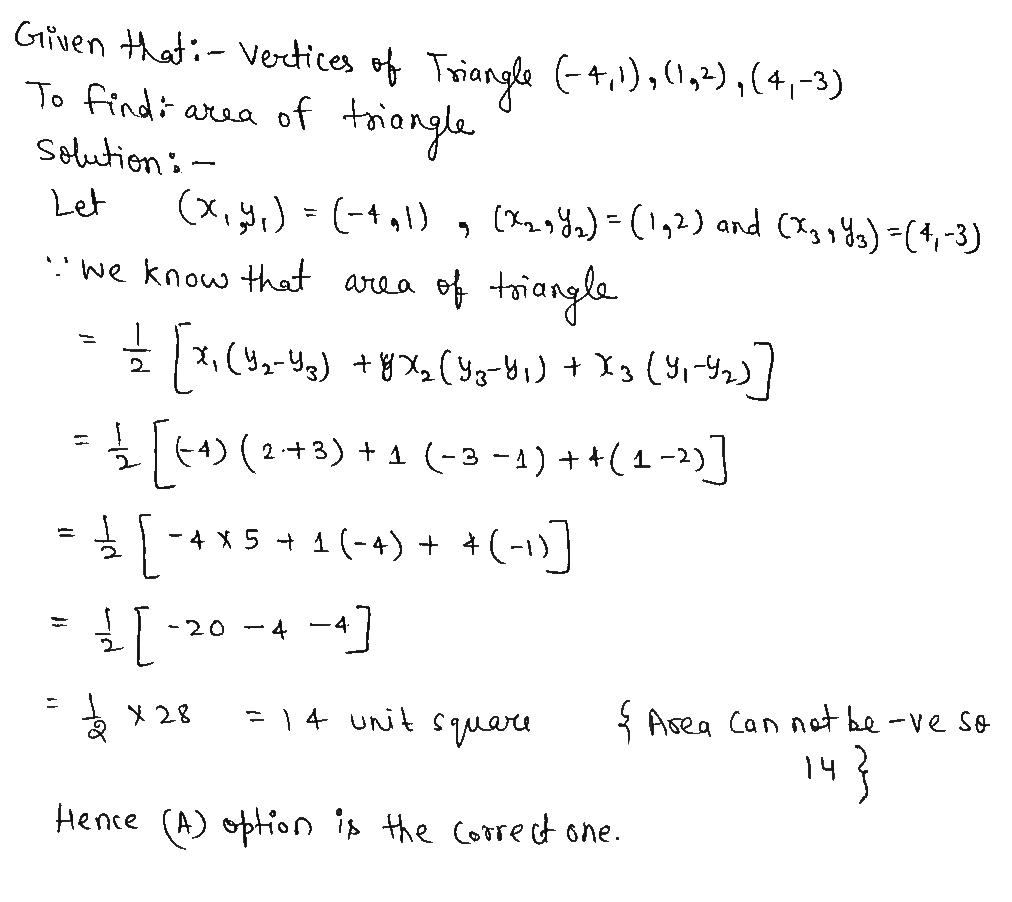 Given that:- Vertices of Triangle (-4,1), (1,2), (4,-3)
To find:- area of triangle
Solution:-
Let (x₁,y₁) = (-4,1) , (x₂,y₂) = (1,2) and (x₃,y₃) = (4,-3)
∵ we know that area of triangle
= 1/2 [x₁(y₂-y₃) + x₂(y₃-y₁) + x₃(y₁-y₂)]
= 1/2 [(-4)(2+3) + 1 (-3-1) + 4(1-2)]
= 1/2 [-4×5 + 1(-4) + 4(-1)]
= 1/2 [-20 -4 -4]
= 1/2 × 28 = 14 unit square { Area can not be -ve so
14 }
Hence (A) option is the correct one.